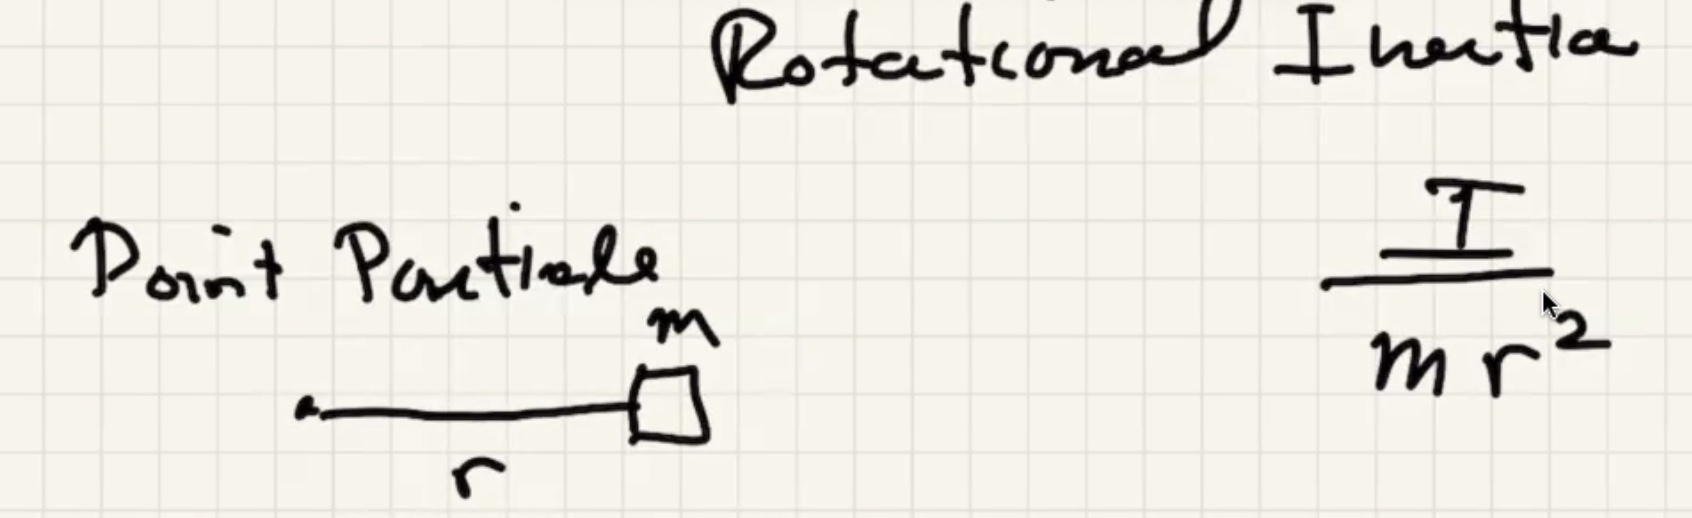 Rotational Inertia
I
Point Particle
m
m r²
r